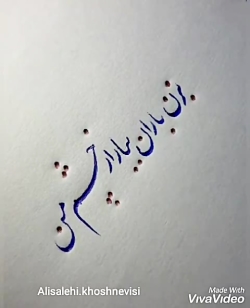 بزن باران ببار از چشم من
Alisalehi.khoshnevisi
Made With
VivaVideo